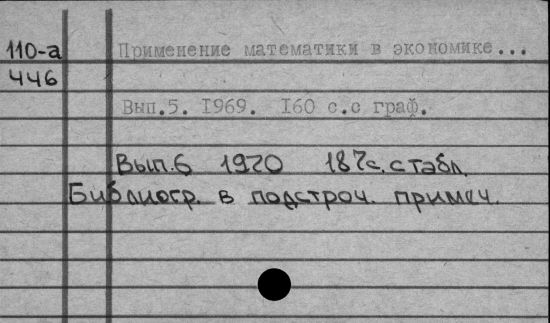 110-а Применение математики в экономике...
446
Вып.5. I969. I60 с.с граф.
Вып.6 1970 187с. с табл.
Библиогр. в подстроч. примеч.